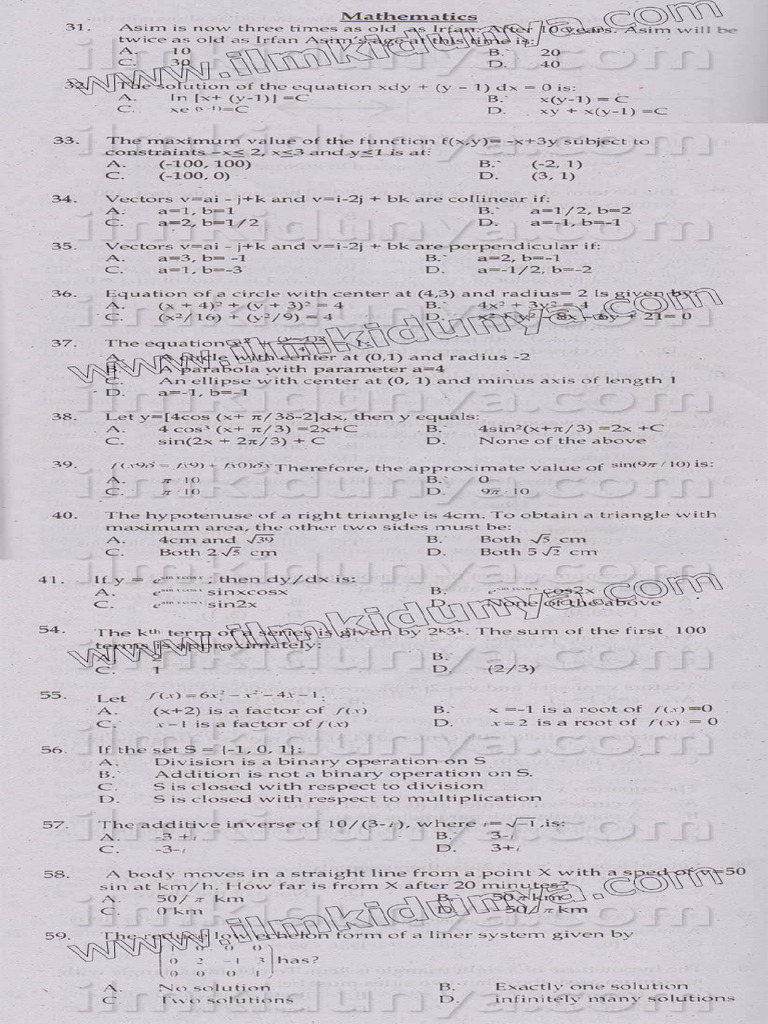 Mathematics
31. Asim is now three times as old as Irfan. After 10 years. Asim will be
twice as old as Irfan Asim's age at this time is:
A. 10 B. 20
C. 30 D. 40
32. The solution of the equation xdy + (y – 1) dx = 0 is:
A. ln [x+ (y-1)] =C B. x(y-1) = C
C. xe (y-1)=C D. xy + x(y-1) =C
33. The maximum value of the function f(x,y)= -x+3y subject to
constraints –x≤ 2, x≤3 and y≤1 is at:
A. (-100, 100) B. (-2, 1)
C. (-100, 0) D. (3, 1)
34. Vectors v=ai - j+k and v=i-2j + bk are collinear if:
A. a=1, b=1 B. a=1/2, b=2
C. a=2, b=1/2 D. a=-1, b=-1
35. Vectors v=ai - j+k and v=i-2j + bk are perpendicular if:
A. a=3, b= -1 B. a=2, b=-1
C. a=1, b=-3 D. a=-1/2, b=-2
36. Equation of a circle with center at (4,3) and radius= 2 Is given by:
A. (x + 4)² + (y + 3)² = 4 B. 4x² + 3y² = 4
C. (x²/16) + (y²/9) = 4 D. x² + y² – 8x – 6y + 21= 0
37. The equation
A. A circle with center at (0,1) and radius -2
B. A parabola with parameter a=4
C. An ellipse with center at (0, 1) and minus axis of length 1
D. a=-1, b=-1
38. Let y=[4cos (x+ π/3δ-2]dx, then y equals:
A. 4 cos³ (x+ π/3) =2x+C B. 4sin²(x+π/3) =2x +C
C. sin(2x + 2π/3) + C D. None of the above
39. Therefore, the approximate value of sin(9π / 10) is:
A. π 10 B. 0
C. π 10 D. 9π 10
40. The hypotenuse of a right triangle is 4cm. To obtain a triangle with
maximum area, the other two sides must be:
A. 4cm and √39 B. Both √5 cm
C. Both 2√5 cm D. Both 5√2 cm
41. If y = then dy/dx is:
A. sinxcosx B. cos2x
C. sin2x D. None of the above
54. The kth term of a series is given by 2ᵏ3ᵏ. The sum of the first 100
terms is approximately:
A. 2 B.
C. 1 D. (2/3)
55. Let
A. (x+2) is a factor of f(x) B. x =-1 is a root of f(x)=0
C. x-1 is a factor of f(x) D. x=2 is a root of f(x) = 0
56. If the set S = {-1, 0, 1}:
A. Division is a binary operation on S
B. Addition is not a binary operation on S.
C. S is closed with respect to division
D. S is closed with respect to multiplication
57. The additive inverse of 10/(3-i), where i=√-1,is:
A. -3 +i B. 3-i
C. -3-i D. 3+i
58. A body moves in a straight line from a point X with a sped of v=50
sin at km/h. How far is from X after 20 minutes?
A. 50/ π km B. 50π km
C. 0 km D. 50/ π km
59. The reduce low echelon form of a liner system given by
0 0 0
0 2 -1 3 has?
0 0 0 1
A. No solution B. Exactly one solution
C. Two solutions D. infinitely many solutions
www.ilmkidunya.com
ilmkidunya.com